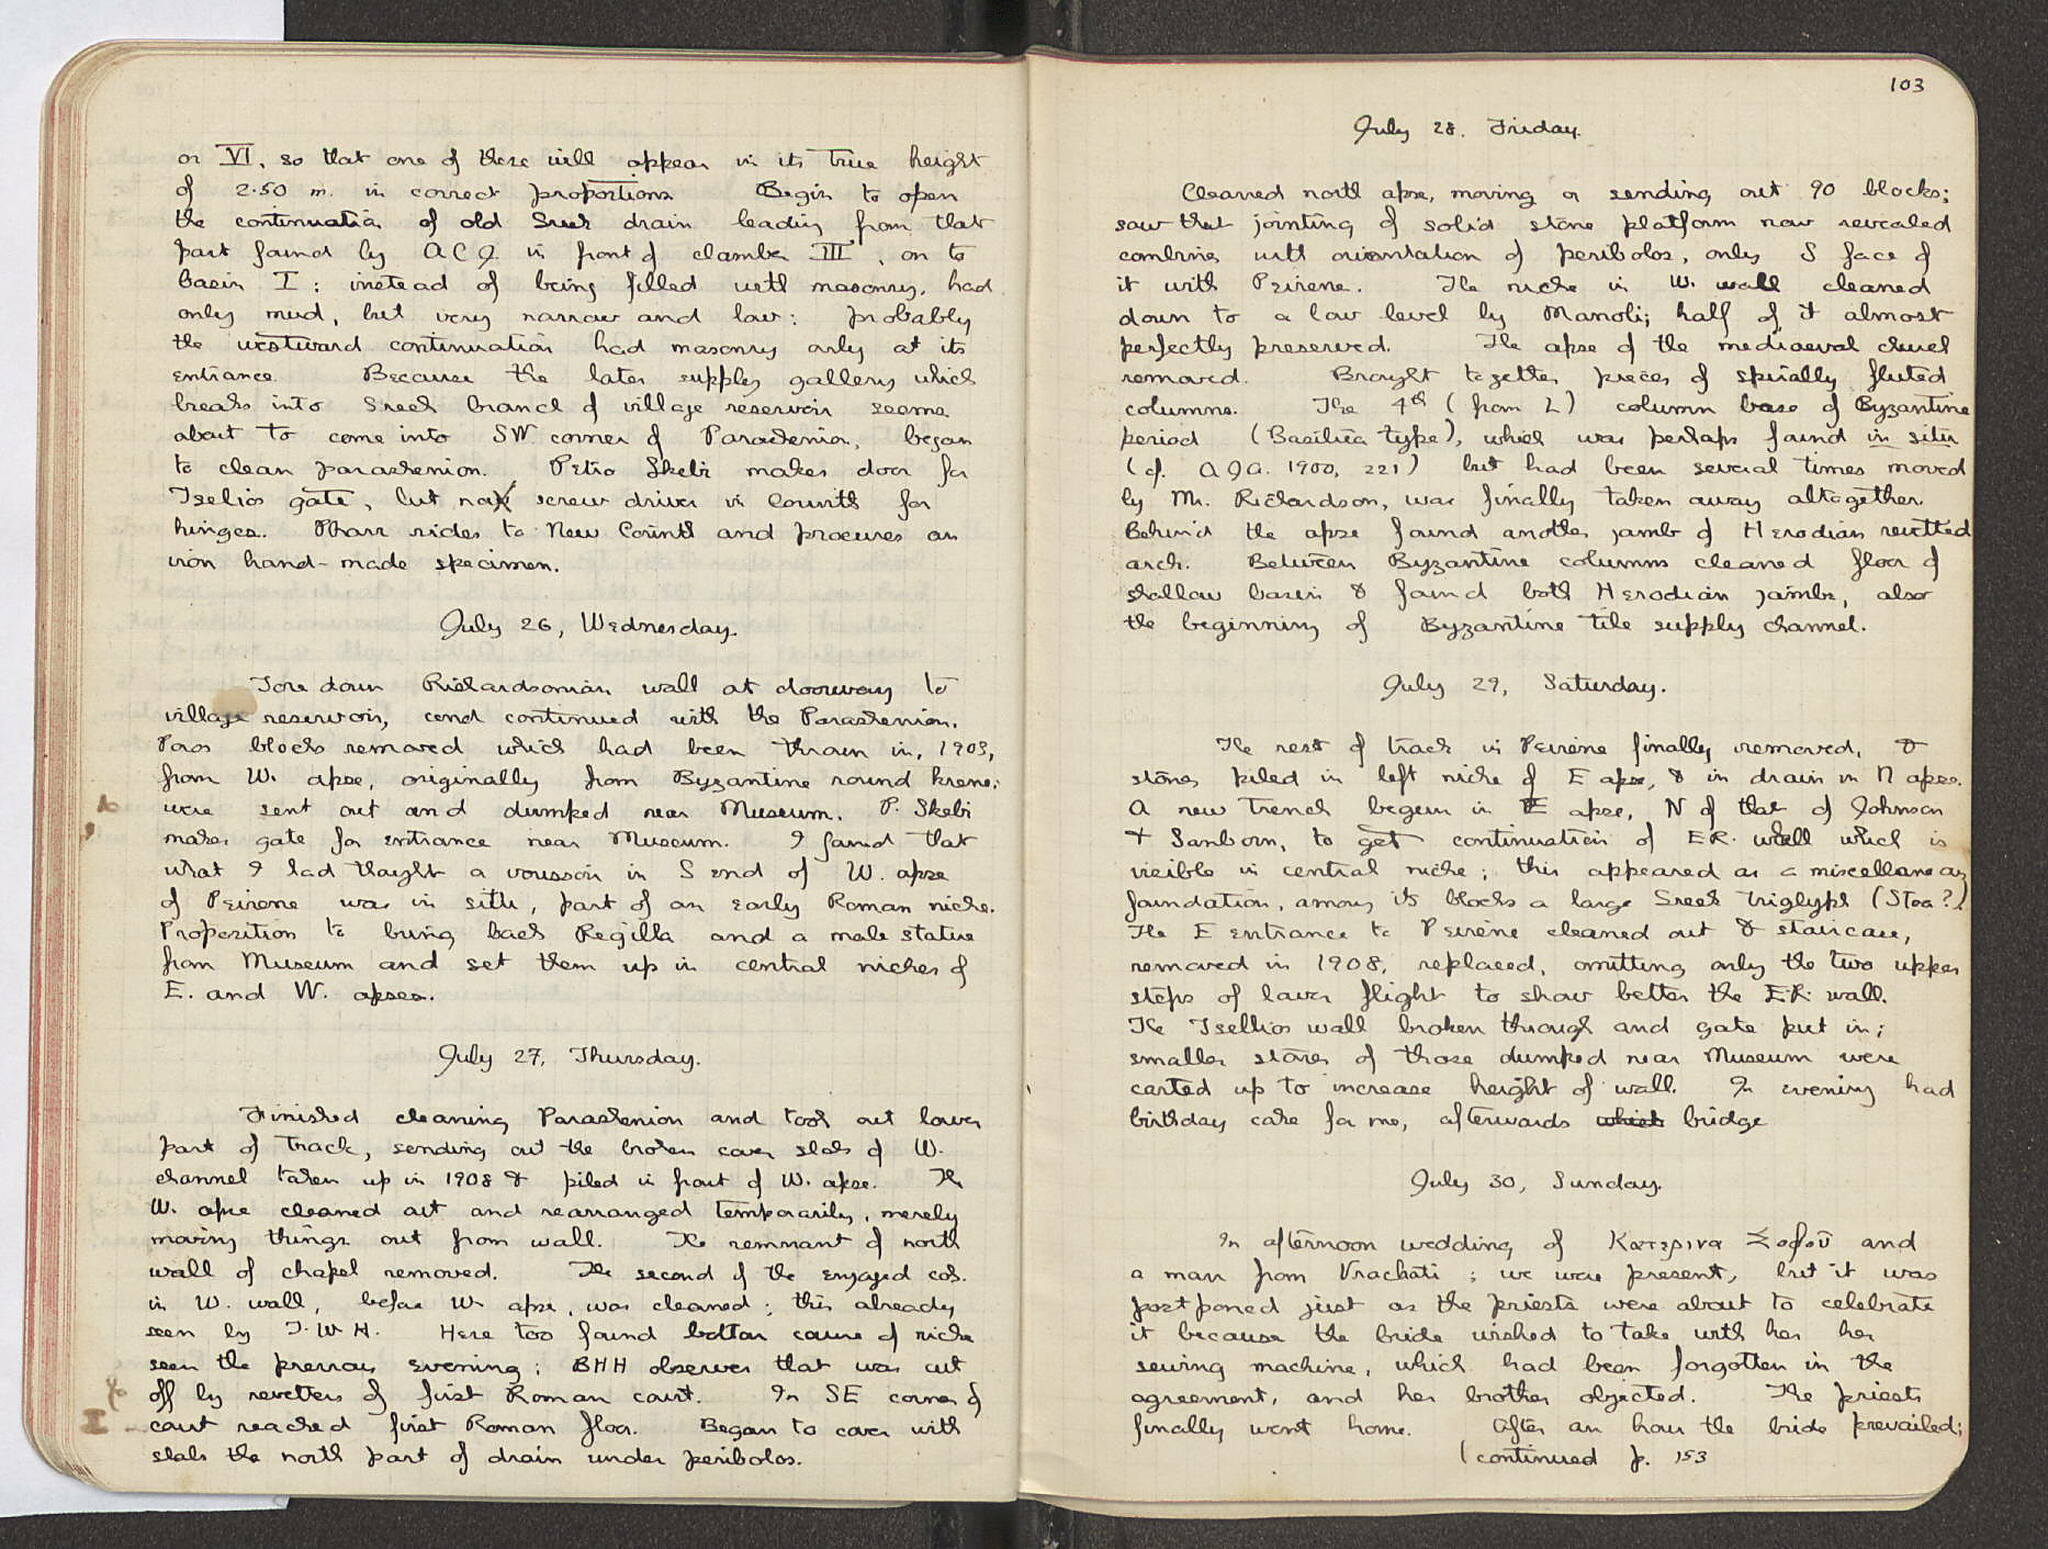 or VI, so that one of these will appear in its true height
of 2.50 m. in correct proportions Begin to open
the continuation of old Greek drain leading from that
part found by A C J. in front of chamber III, on to
basin I: instead of being filled with masonry, had
only mud, but very narrow and low: probably
the westward continuation had masonry only at its
entrance. Because the later supply gallery which
breaks into Greek branch of village reservoir seems
about to come into SW corner of Paraskenion, began
to clean paraskenion. Petro Skebi makes door for
Tselios gate, but no screw driver in Corinth for
hinges. Pharr rides to New Corinth and procures an
iron hand-made specimen.
July 26, Wednesday.
Tore down Richardsonian wall at doorway to
village reservoir, and continued with the Paraskenion.
Poros blocks removed which had been thrown in, 1909,
from W. apse, originally from Byzantine round krene;
were sent out and dumped near Museum. P. Skebi
makes gate for entrance near Museum. I found that
what I had thought a voussoir in S end of W. apse
of Peirene was in situ, part of an early Roman niche.
Proposition to bring back Regilla and a male statue
from Museum and set them up in central niches of
E. and W. apses.
July 27, Thursday.
Finished cleaning Paraskenion and took out lower
part of track, sending out the broken cover slabs of W.
channel taken up in 1908 & piled in front of W. apse. The
W. apse cleaned out and rearranged temporarily, merely
moving things out from wall. The remnant of north
wall of chapel removed. The second of the engaged cols.
in W. wall, before W. apse, was cleaned; this already
seen by T. W. H. Here too found bottom course of niche
seen the previous evening; BHH observes that was cut
off by revetters of first Roman court. In SE corner of
court reached first Roman floor. Began to cover with
slabs the north part of drain under peribolos.
103
July 28. Friday.
Cleaned north apse, moving or sending out 90 blocks;
saw that jointing of solid stone platform now revealed
combines with orientation of peribolos, only S face of
it with Peirene. The niche in W. wall cleaned
down to a low level by Manoli; half of it almost
perfectly preserved. The apse of the mediaeval church
removed. Brought together pieces of spirally fluted
columns. The 4th (from L) column base of Byzantine
period (Basilica type), which was perhaps found in situ
(cf. A J A. 1900, 221) but had been several times moved
by Mr. Richardson, was finally taken away altogether.
Behind the apse found another jamb of Herodian revetted
arch. Between Byzantine columns cleaned floor of
shallow basin & found both Herodian jambs, also
the beginning of Byzantine tile supply channel.
July 29, Saturday.
The rest of track in Peirene finally removed, &
stones piled in left niche of E apse, & in drain in N apse.
A new trench begun in E apse, N of that of Johnson
& Sanborn, to get continuation of ER. wall which is
visible in central niche; this appeared as a miscellaneous
foundation, among its blocks a large Greek triglyph (Stoa?).
The E entrance to Peirene cleaned out & staircase,
removed in 1908, replaced, omitting only the two upper
steps of lower flight to show better the ER wall.
The Tsellios wall broken through and gate put in;
smaller stones of those dumped near Museum were
carted up to increase height of wall. In evening had
birthday cake for me, afterwards which bridge
July 30, Sunday.
In afternoon wedding of Κατερινα Σοφοῦ and
a man from Vrachati; we were present, but it was
postponed just as the priests were about to celebrate
it because the bride wished to take with her her
sewing machine, which had been forgotten in the
agreement, and her brother objected. The priests
finally went home. After an hour the bride prevailed;
(continued p. 153